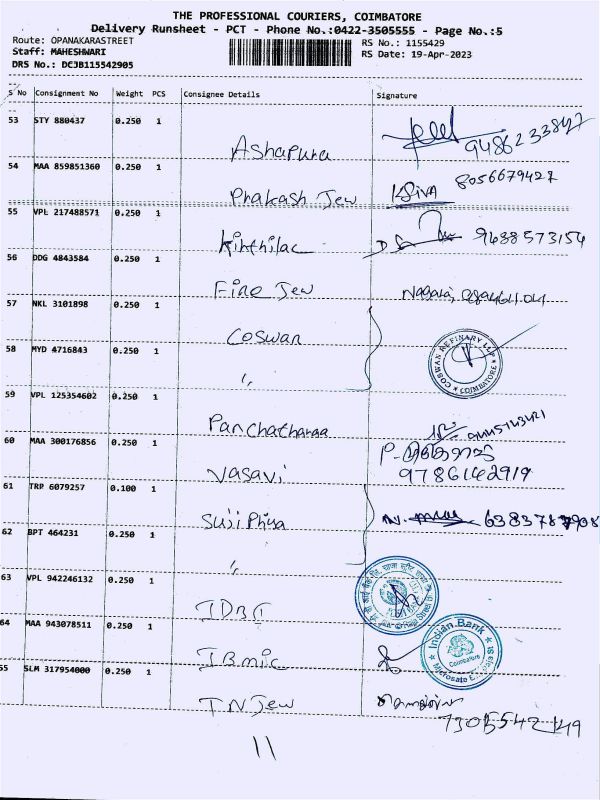 THE PROFESSIONAL COURIERS, COIMBATORE
Delivery Runsheet - PCT - Phone No.:0422-3505555 - Page No.:5
Route: OPANAKARASTREET
RS No.: 1155429
Staff: MAHESHWARI
RS Date: 19-Apr-2023
DRS No.: DCJB115542905
S No Consignment No Weight PCS Consignee Details Signature
53 STY 880437 0.250 1 Ashapura 9486233847
54 MAA 859851360 0.250 1 Prakash Jew KSiva 8056679427
55 VPL 217488571 0.250 1 9488573154
56 DDG 4843584 0.250 1 Fine Jew
57 NKL 3101898 0.250 1 Coswan
COSWAN REFINARY LLP COIMBATORE
58 MYD 4716843 0.250 1 "
59 VPL 125354602 0.250 1 Panchatharaa
60 MAA 300176856 0.250 1 Vasavi 9786142919
61 TRP 6079257 0.100 1 Suji Priya
62 BPT 464231 0.250 1 "
63 VPL 942246132 0.250 1 IDBI
64 MAA 943078511 0.250 1 IBmic
Indian Bank Coimbatore
55 SLM 317954000 0.250 1 TNJew 7305542149
11